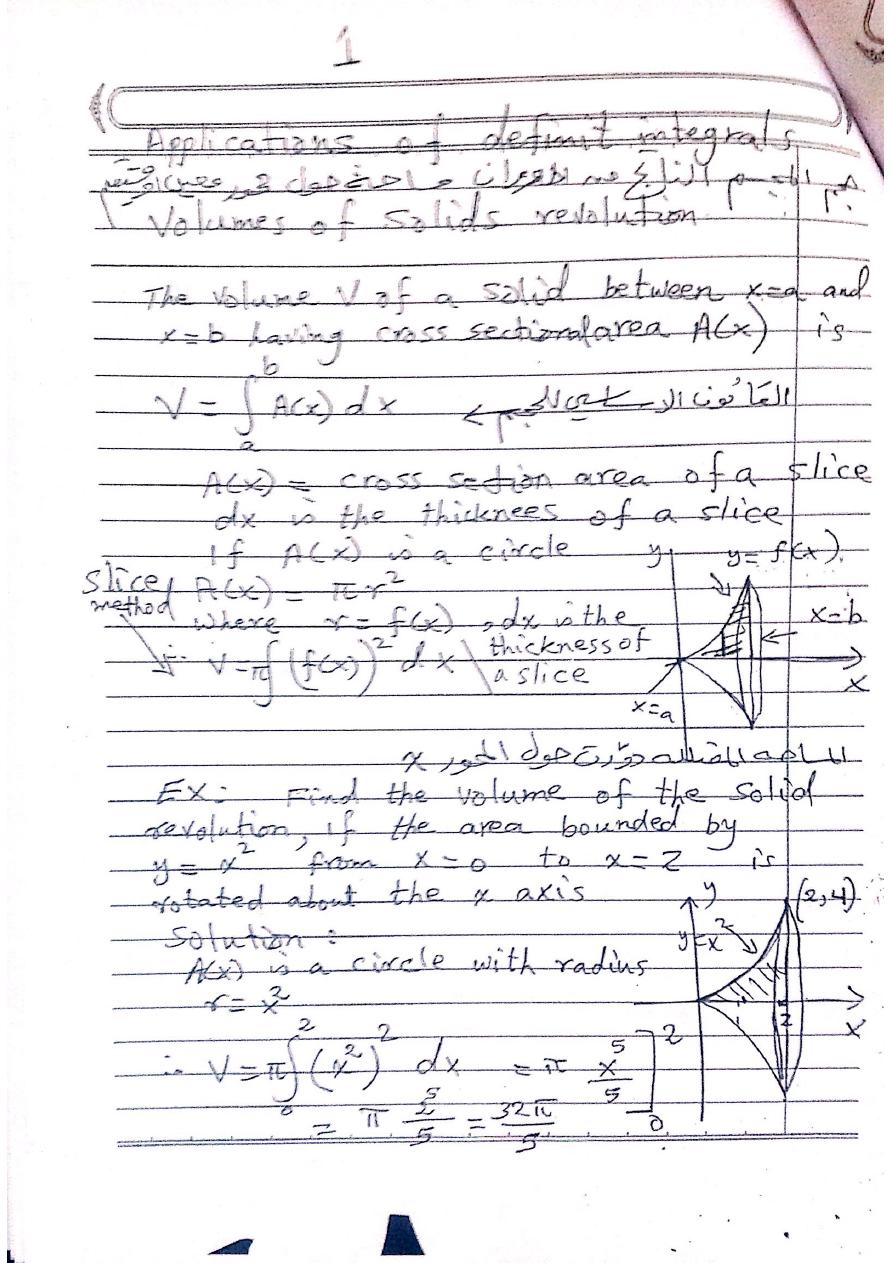 1
Applications of definit integrals
حجم المجسم الناتج من دوران مساحة حول محور معين أو مستقيم
Volumes of Solids revolution
The Volume V of a Solid between x=a and
x=b having cross sectional area A(x) is
V = ∫ₐᵇ A(x) dx القانون الاساسي للحجم ←
A(x) = cross section area of a slice
dx is the thicknees of a slice
If A(x) is a circle
y y = f(x)
slice method A(x) = πr²
where r = f(x) , dx is the thickness of a slice
x=b
∴ V = π∫ (f(x))² dx
x
x=a
حول المحور x
Ex: Find the volume of the Solid
revolution, if the area bounded by
y = x² from x=0 to x=2 is
rotated about the x axis
y (2,4)
Solution:
y=x²
A(x) is a circle with radius
r = x²
2 x
∴ V = π∫₀² (x²)² dx = π x⁵/5 ]₀²
= π 2⁵/5 = 32π/5